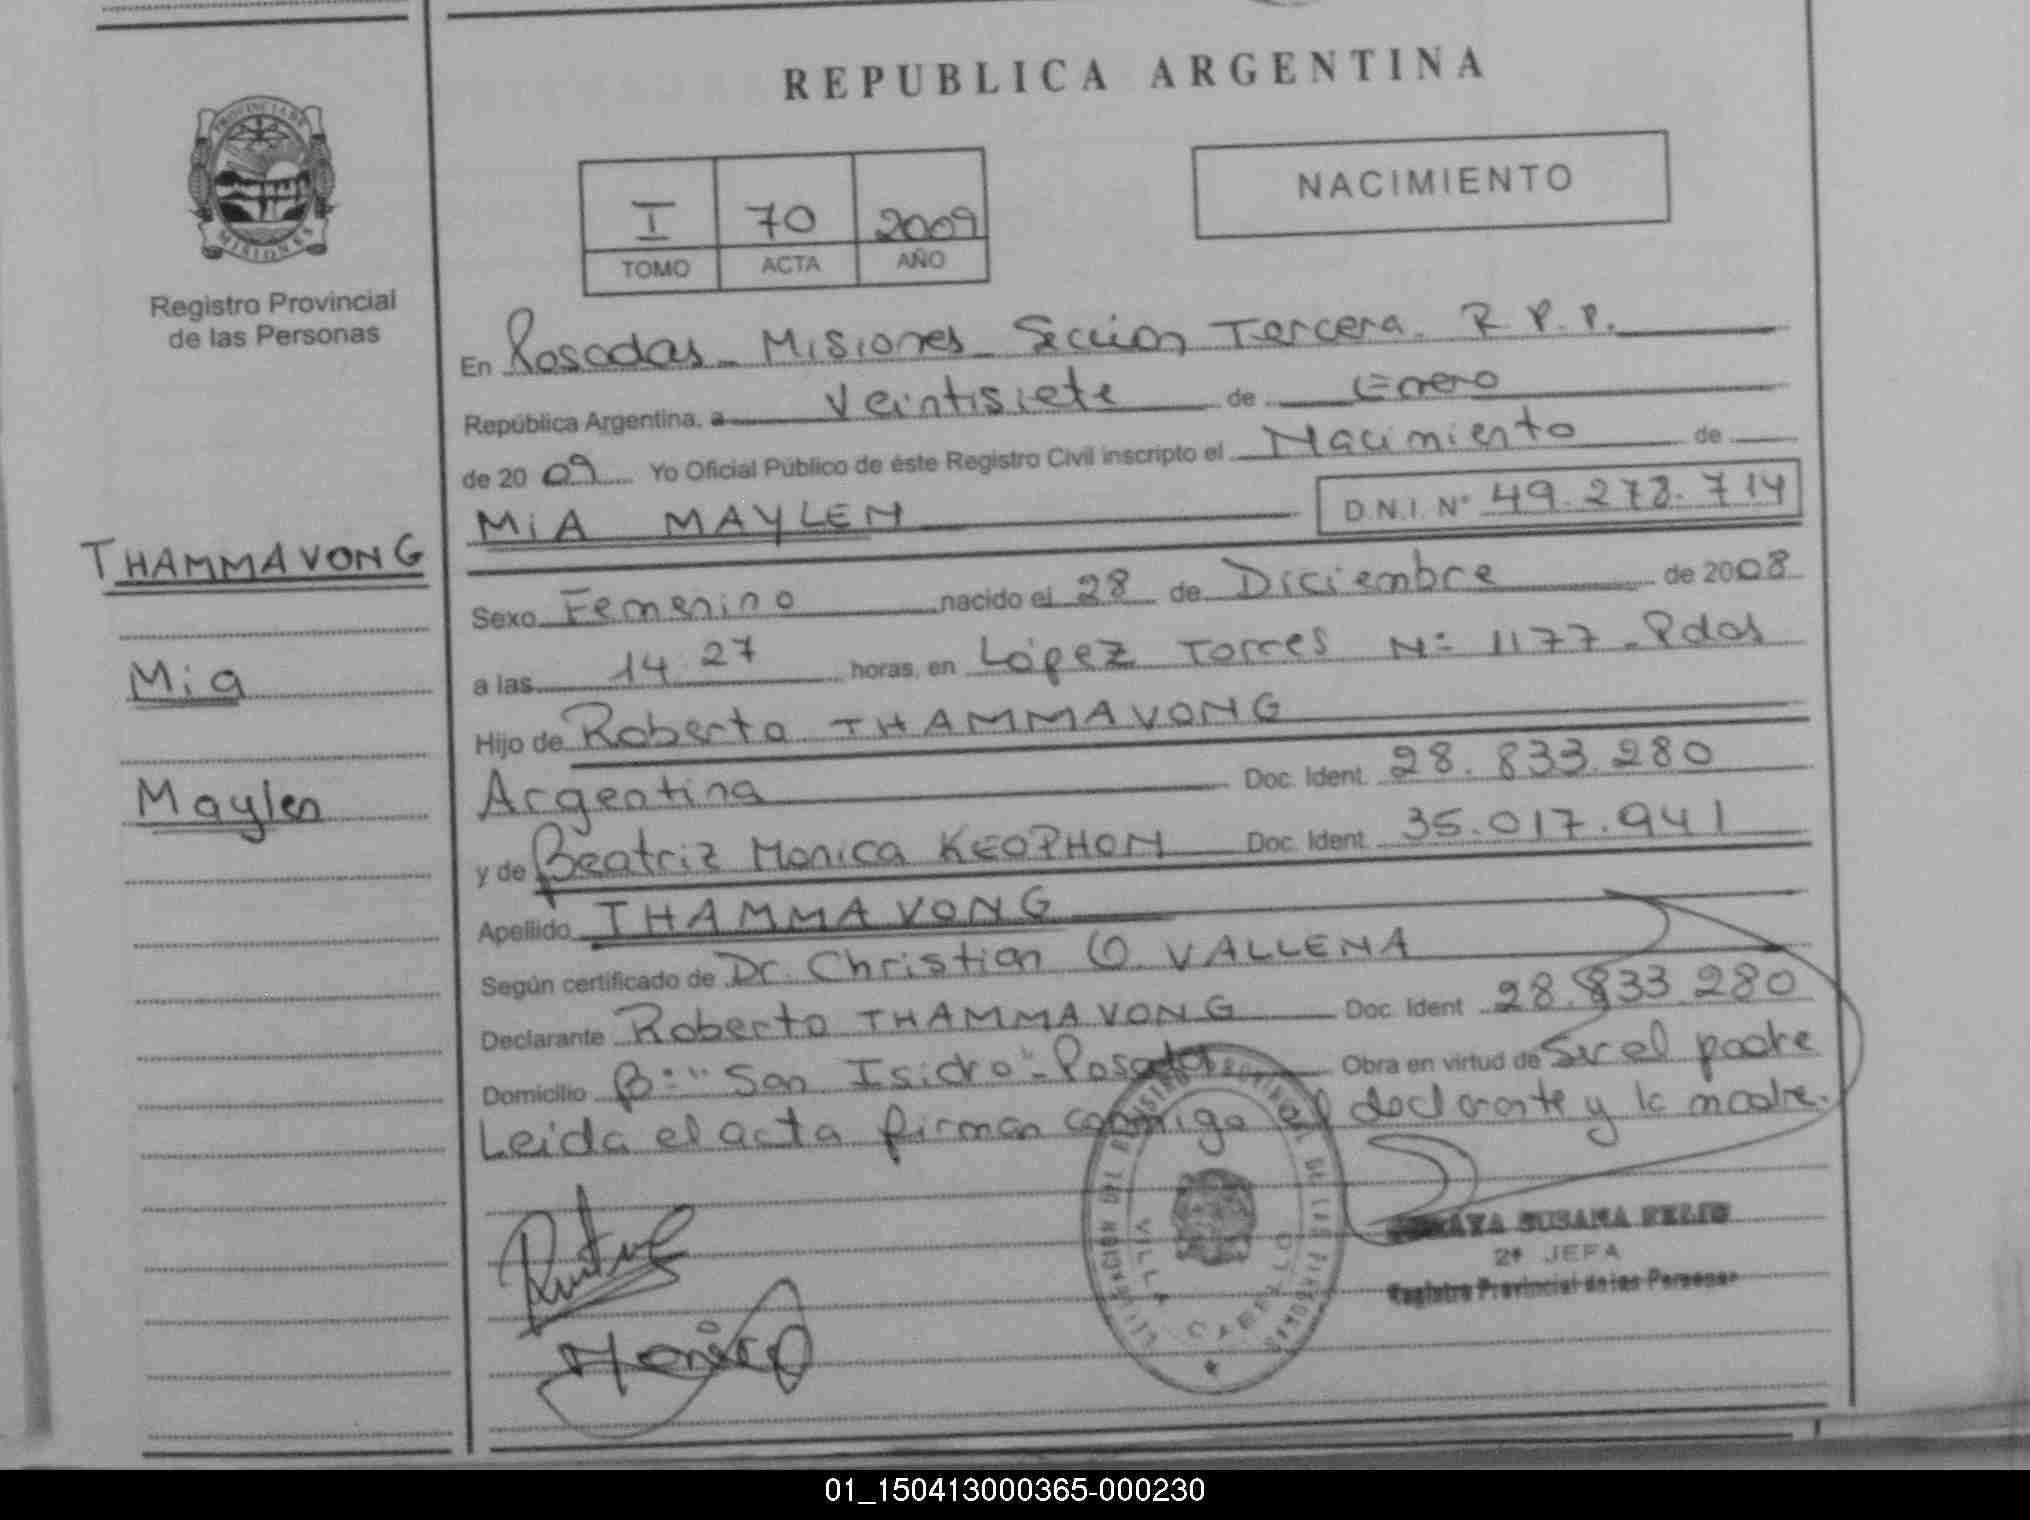 REPUBLICA ARGENTINA
PROVINCIA DE
MISIONES
Registro Provincial
de las Personas
I 70 2009
TOMO ACTA AÑO
NACIMIENTO
En Posadas Misiones Sección Tercera. R.P.P.
República Argentina, a Veintisiete de Enero
de 2009 Yo Oficial Público de éste Registro Civil inscripto el Nacimiento de
MiA MAYLEN D.N.I. N° 49.278.714
THAMMAVONG
Mia
Maylen
Sexo Femenino nacido el 28 de Diciembre de 2008
a las 14 27 horas, en López Torres N= 1177 - Pdas
Hijo de Roberto THAMMAVONG
Argentina Doc. Ident. 28.833.280
y de Beatriz Monica KEOPHON Doc. Ident. 35.017.941
Apellido THAMMAVONG
Según certificado de Dr. Christian O. VALLENA
Declarante Roberto THAMMAVONG Doc. Ident 28.833.280
Domicilio B: "San Isidro" - Posadas Obra en virtud de Ser el padre
Leida el acta firman conmigo el declarante y la madre.
Monica
VILLA CABELLO
SUSANA
2ª JEFA
Registro Provincial de las Personas
01_150413000365-000230